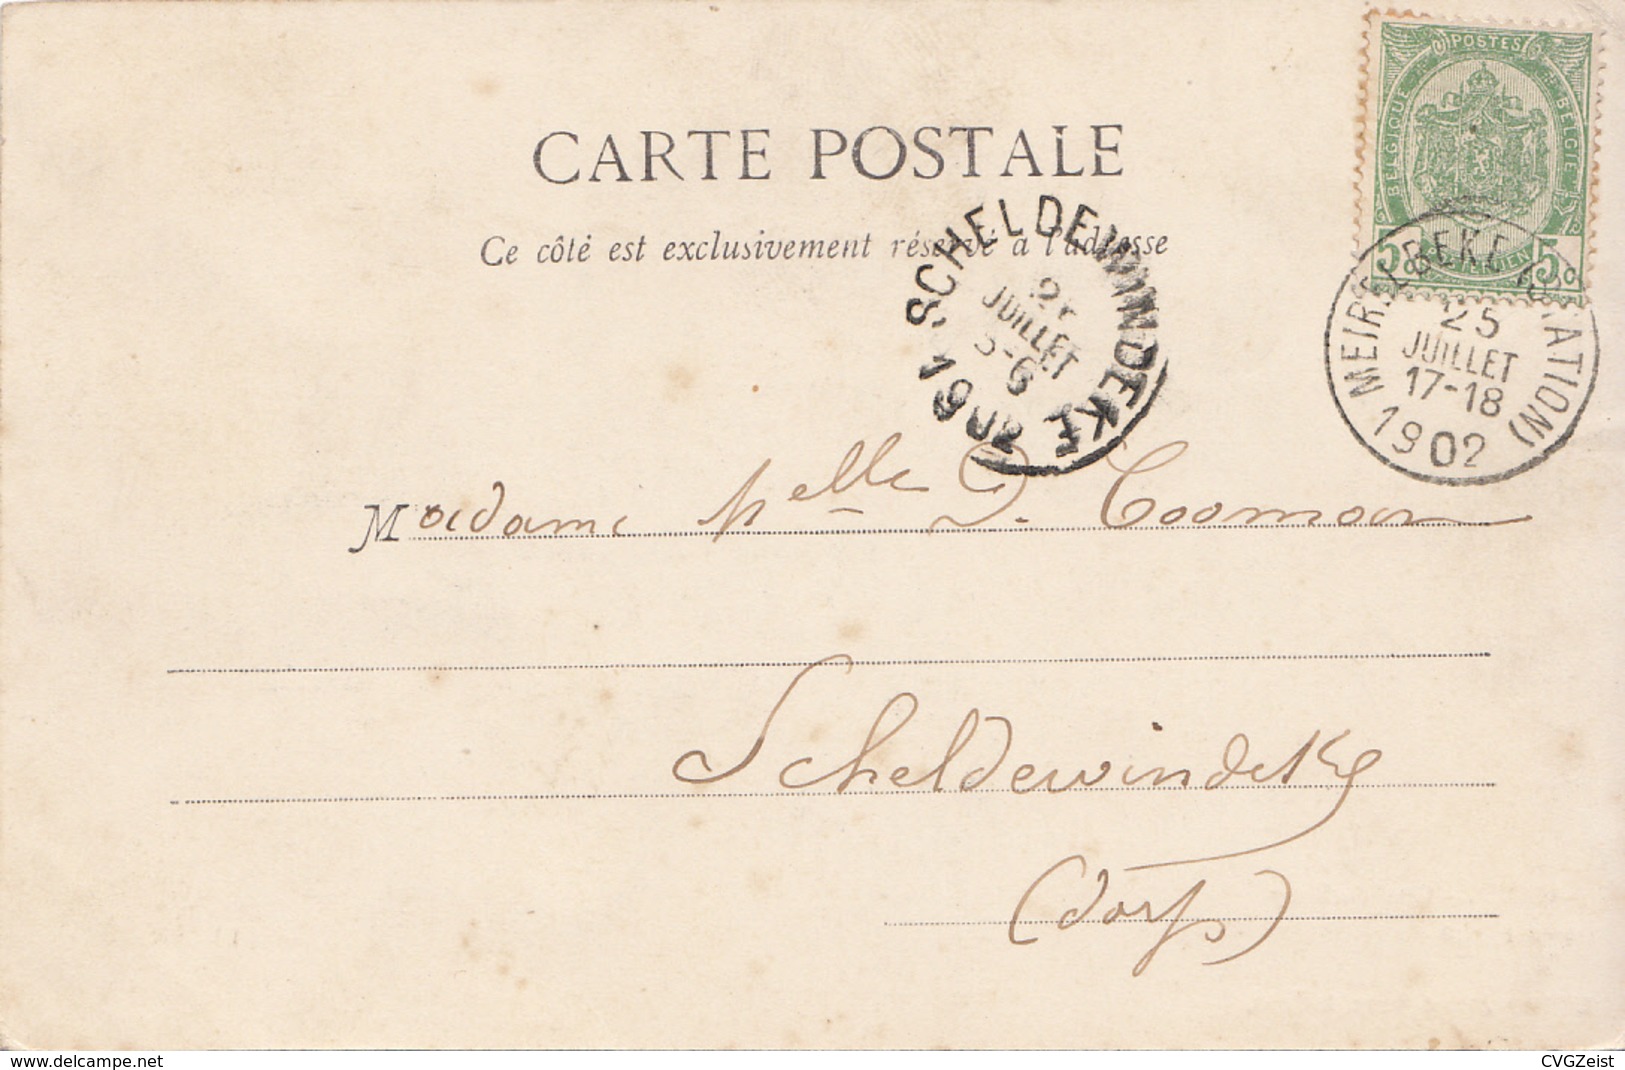 POSTES
BELGIQUE
BELGIË
5c 5c
CARTE POSTALE
Ce côté est exclusivement réservé à l'adresse
SCHELDEWINDEKE
JUILLET
5-6
1902
MEIRELBEKE (STATION)
25
JUILLET
17-18
1902
Madame
Scheldewindeke
(dorp)
www.delcampe.net
CVGZeist